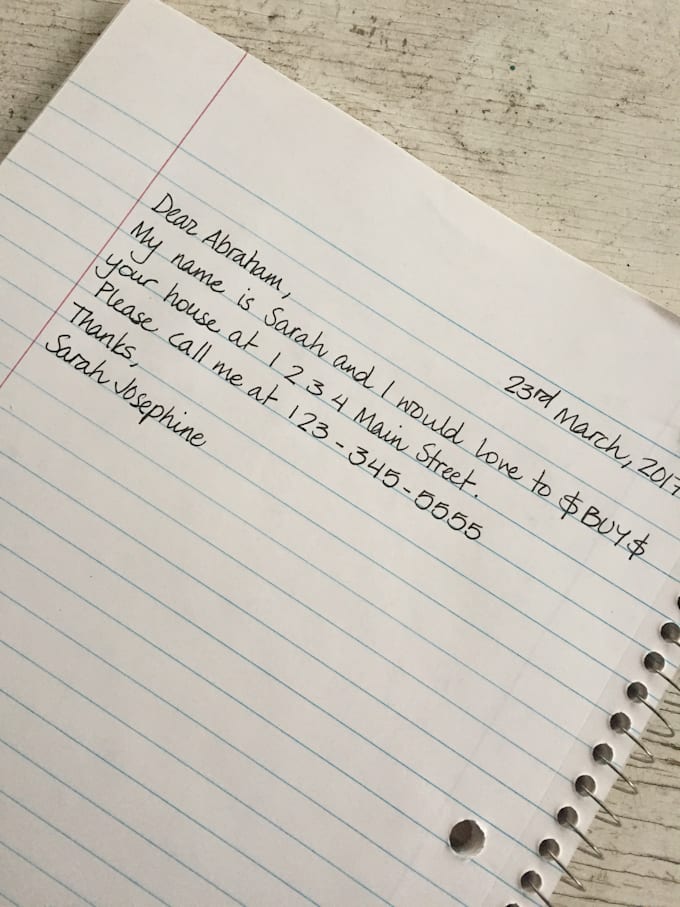 23rd March, 2017
Dear Abraham,
My name is Sarah and I would love to $BUY$
your house at 1 2 3 4 Main Street.
Please call me at 123-345-5555
Thanks,
Sarah Josephine